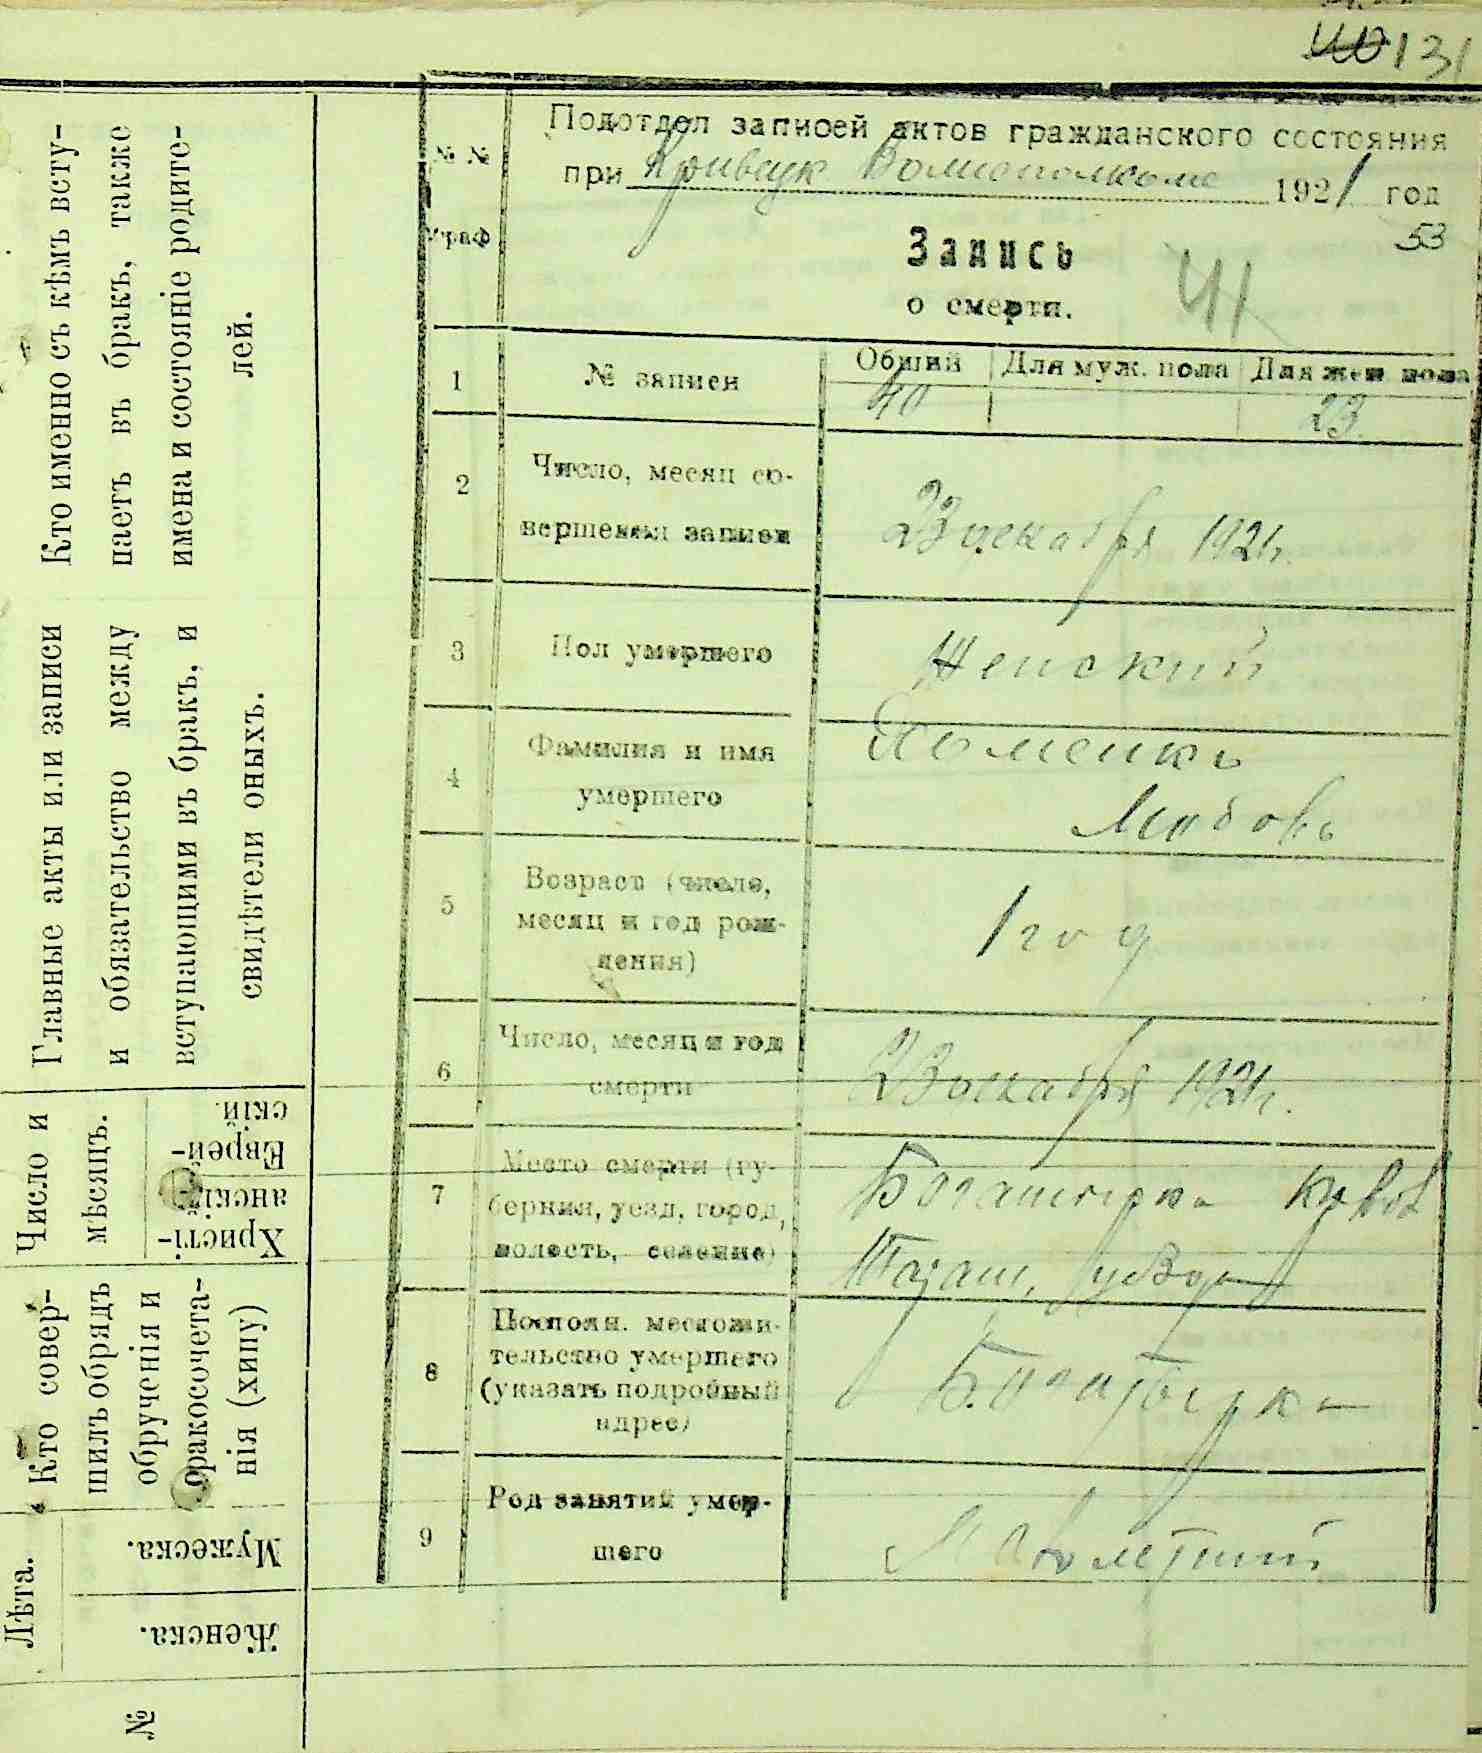 131
Кто именно съ кѣмъ всту-
паетъ въ бракъ, также
имена и состояніе родите-
лей.
Главные акты или записи
и обязательство между
вступающими въ бракъ, и
свидѣтели оныхъ.
Число и
мѣсяцъ.
Еврей-
скій.
Христі-
анскій.
Кто совер-
шилъ обрядъ
обрученія и
бракосочета-
нія (хипу)
Лѣта.
Мужеска.
Женска.
№
№ №
граф
Подотдел записей актов гражданского состояния
при Волисполкоме 1921 год
53
Запись
41
о смерти.
1 № записи Общий Для муж. пола Для жен пола
40 23
2 Число, месяц со-
вершения записи
23 декабря 1921г.
3 Пол умершего Женский
4 Фамилия и имя
умершего
Хоменко
Любовь
5 Возраст (число,
месяц и год рож-
дения)
1 год
6 Число, месяц и год
смерти
23 декабря 1921г.
7 Место смерти (гу-
берния, уезд, город,
волость, селение)
Богатырка
Таращ. уезда
8 Постоян. местожи-
тельство умершего
(указать подробный
адрес)
Богатырка
9 Род занятий умер-
шего
Малолетний